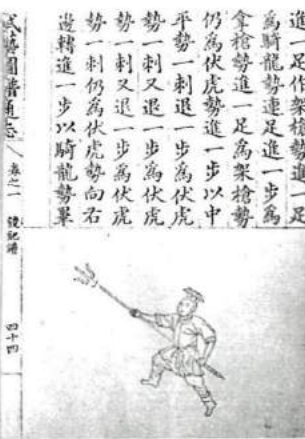 進一足作架槍勢進一足
為騎龍勢連足進一步為
拿槍勢進一足為架槍勢
仍為伏虎勢進一步以中
平勢一刺退一步為伏虎
勢一刺又退一步為伏虎
勢一刺又退一步為伏虎
勢一刺仍為伏虎勢向右
邊轉進一步以騎龍勢畢
武藝圖譜通志
卷之一
四十四